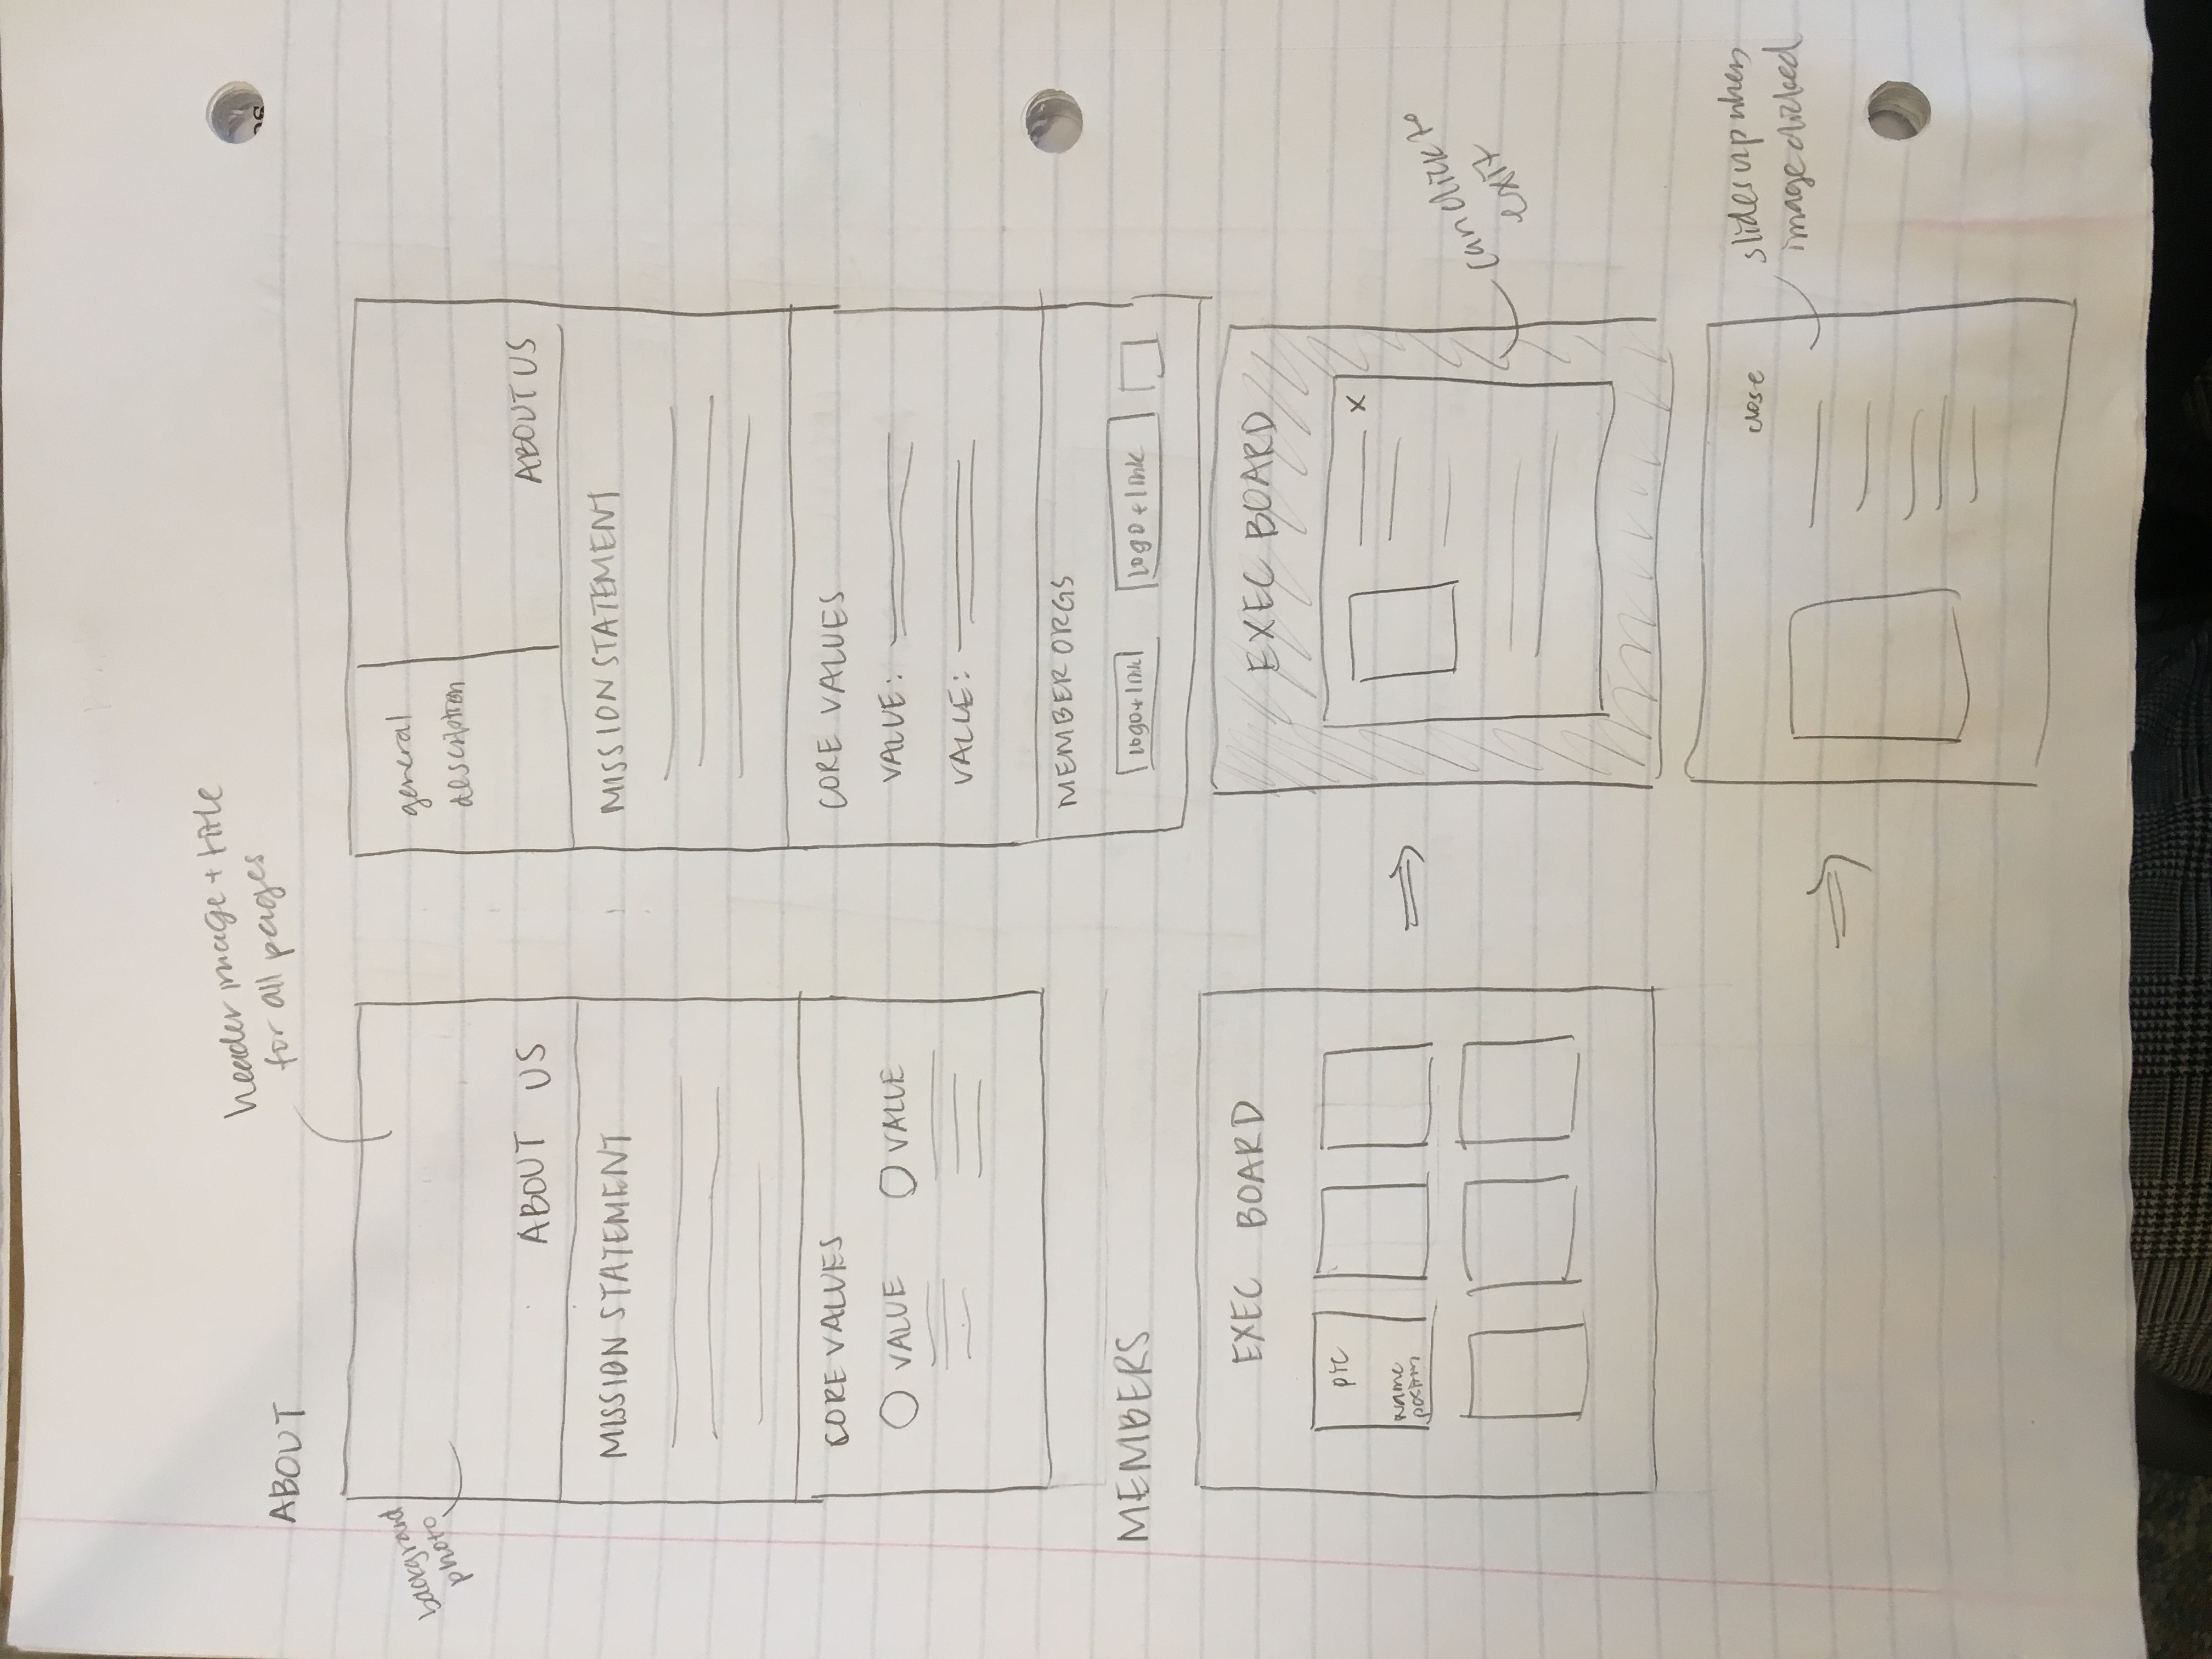 header image + title
for all pages
ABOUT
background
photo
ABOUT US
MISSION STATEMENT
CORE VALUES
VALUE VALUE
general
description
ABOUT US
MISSION STATEMENT
CORE VALUES
VALUE:
VALUE:
MEMBER ORGS
logo + link logo + link
MEMBERS
EXEC BOARD
pic
name
position
EXEC BOARD
X
can click to
exit
close
slides up when
image clicked